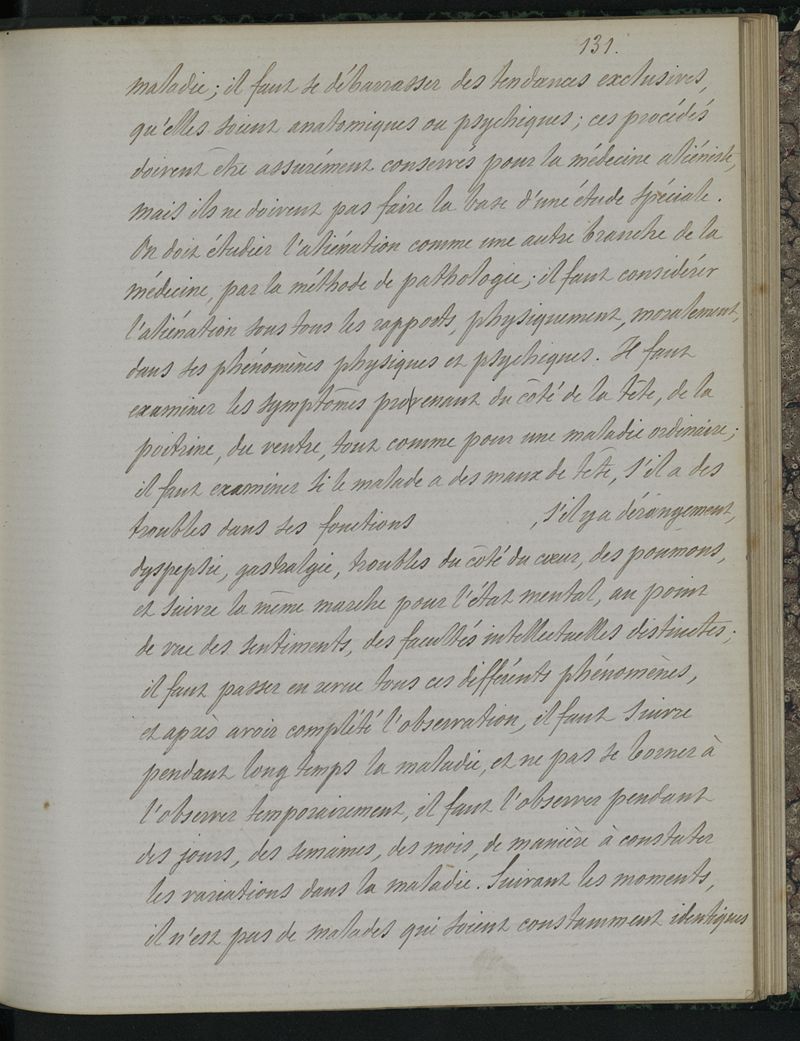 131.
maladie; il faut se débarrasser des tendances exclusives,
qu'elles soient anatomiques ou psychiques; ces procédés
doivent être assurément conservés pour la médecine aliéniste,
mais ils ne doivent pas faire la base d'une étude spéciale.
On doit étudier l'aliénation comme une autre branche de la
médecine, par la méthode de pathologie; il faut considérer
l'aliénation sous tous les rapports, physiquement, moralement,
dans ses phénomènes physiques et psychiques. Il faut
examiner les symptômes provenant du côté de la tête, de la
poitrine, du ventre, tout comme pour une maladie ordinaire;
il faut examiner si le malade a des maux de tête, s'il a des
troubles dans ses fonctions , s'il y a dérangement,
dyspepsie, gastralgie, troubles du côté du cœur, des poumons,
et suivre la même marche pour l'état mental, au point
de vue des sentiments, des facultés intellectuelles distinctes;
il faut passer en revue tous ces différents phénomènes,
et après avoir complété l'observation, il faut suivre
pendant long temps la maladie, et ne pas se borner à
l'observer temporairement, il faut l'observer pendant
des jours, des semaines, des mois, de manière à constater
les variations dans la maladie. Suivant les moments,
il n'est pas de malades qui soient constamment identiques